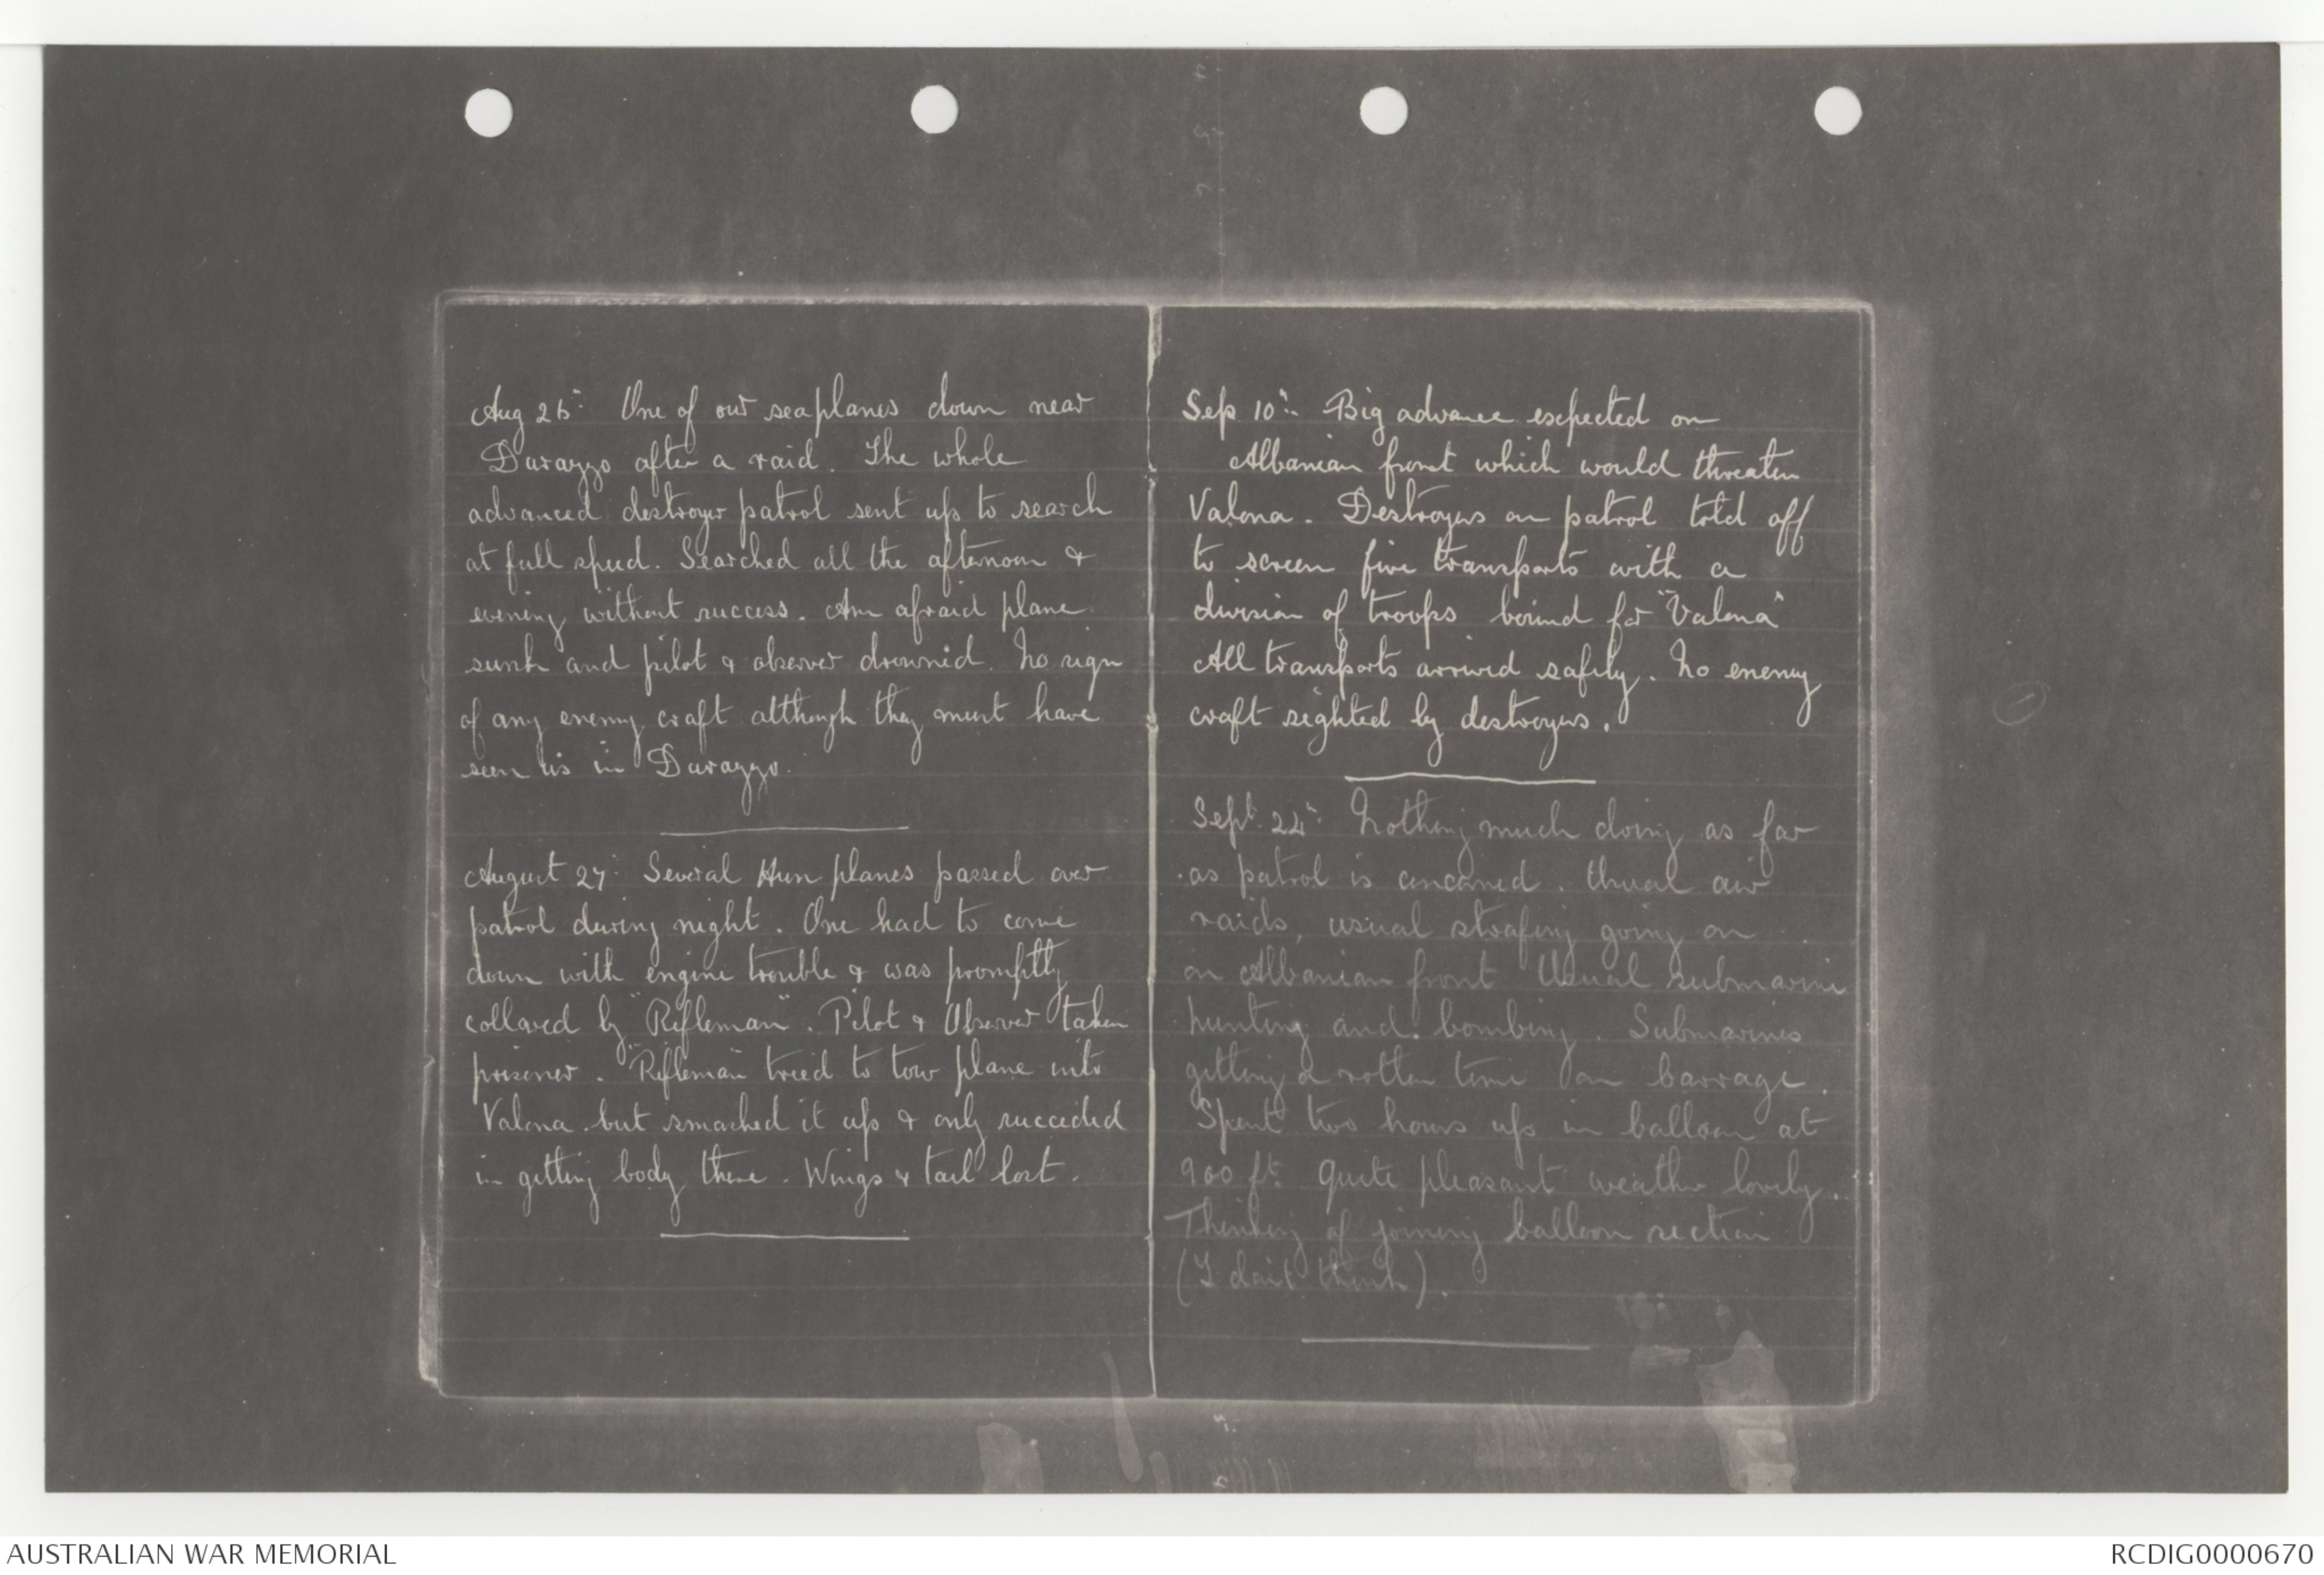 Aug 26th. One of our seaplanes down near
Durazzo after a raid. The whole
advanced destroyer patrol sent up to search
at full speed. Searched all the afternoon &
evening without success. Am afraid plane
sunk and pilot & observer drowned. No sign
of any enemy craft although they must have
seen us in Durazzo.
August 27th. Several Hun planes passed over
patrol during night. One had to come
down with engine trouble & was promptly
collared by "Rifleman". Pilot & Observer taken
prisoner. "Rifleman" tried to tow plane into
Valona but smashed it up & only succeeded
in getting body there. Wings & tail lost.
Sep 10th. Big advance expected on
Albanian front which would threaten
Valona. Destroyers on patrol told off
to screen five transports with a
division of troops bound for "Valona"
All transports arrived safely. No enemy
craft sighted by destroyers.
Sept. 24th. Nothing much doing as far
as patrol is concerned. Usual air
raids, usual strafing going on
on Albanian front Usual submarine
hunting and bombing. Submarines
getting a rotten time on barrage.
Spent two hours up in balloon at
900 ft. quite pleasant weather lovely.
Thinking of joining balloon section
(I don't think).
AUSTRALIAN WAR MEMORIAL
RCDIG0000670